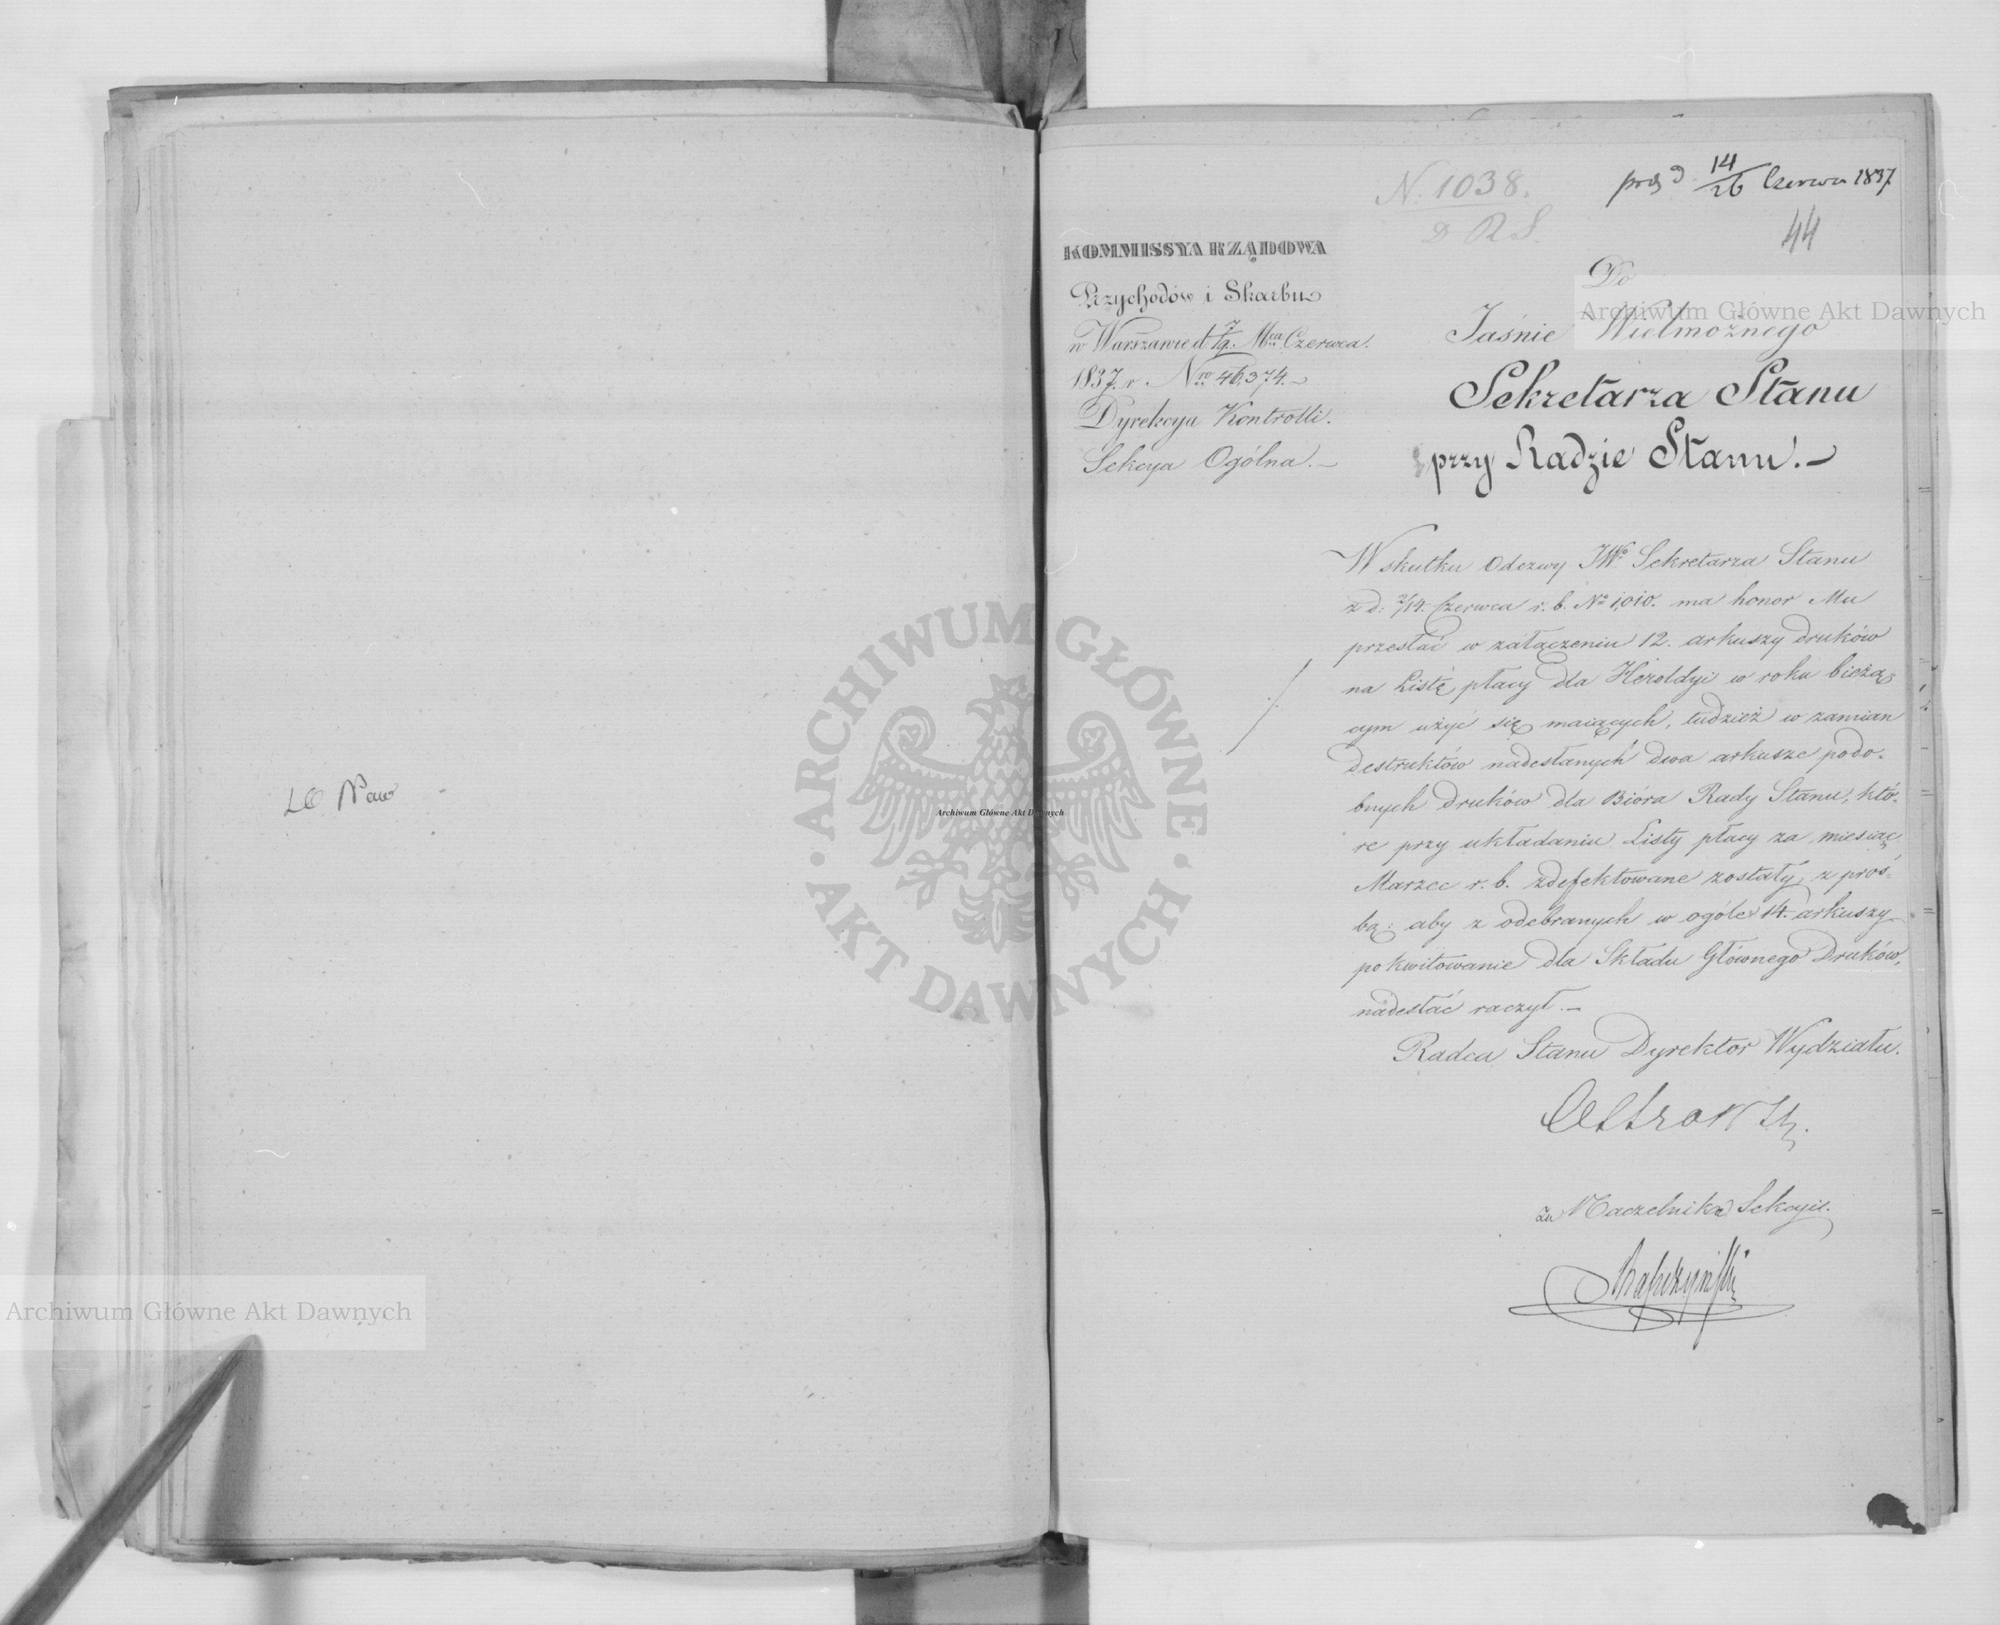 N. 1038.
D RS.
prez d 14/26 Czerwca 1837
44
KOMMISSYA RZĄDOWA
Przychodów i Skarbu
w Warszawie d. 7/19. Mca Czerwca.
1837. r. Nro 46,374.
Dyrekcya Kontrolli.
Sekcya Ogólna.
Do
Jaśnie Wielmożnego
Sekretarza Stanu
przy Radzie Stanu.
W skutku Odezwy JWo Sekretarza Stanu
z d: 2/14. Czerwca r. b. No 1,010. ma honor Mu
przesłać w załączeniu 12. arkuszy druków
na Listę płacy dla Heroldyi w roku bieżą-
cym użyć się maiących, tudzież w zamian
destruktów nadesłanych dwa arkusze podo-
bnych druków dla Bióra Rady Stanu, któ-
re przy układaniu Listy płacy za miesiąc
Marzec r. b. zdefektowane zostały, z proś-
bą: aby z odebranych w ogóle 14. arkuszy
pokwitowanie dla Składu Głównego Druków,
nadesłać raczył.
Radca Stanu Dyrektor Wydziału.
za Naczelnika Sekcyi.
Archiwum Główne Akt Dawnych
ARCHIWUM GŁÓWNE · AKT DAWNYCH ·
Archiwum Główne Akt Dawnych
Archiwum Główne Akt Dawnych